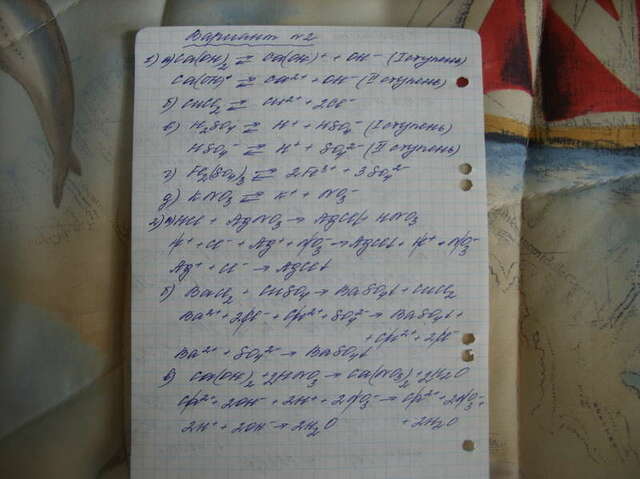 Вариант №2
1) а) Ca(OH)₂ ⇄ Ca(OH)⁺ + OH⁻ (I ступень)
Ca(OH)⁺ ⇄ Ca²⁺ + OH⁻ (II ступень)
б) CuCl₂ ⇄ Cu²⁺ + 2Cl⁻
в) H₂SO₄ ⇄ H⁺ + HSO₄⁻ (I ступень)
HSO₄⁻ ⇄ H⁺ + SO₄²⁻ (II ступень)
г) Fe₂(SO₄)₃ ⇄ 2Fe³⁺ + 3SO₄²⁻
д) KNO₃ ⇄ K⁺ + NO₃⁻
2) а) HCl + AgNO₃ → AgCl↓ + HNO₃
H⁺ + Cl⁻ + Ag⁺ + NO₃⁻ → AgCl↓ + H⁺ + NO₃⁻
Ag⁺ + Cl⁻ → AgCl↓
б) BaCl₂ + CuSO₄ → BaSO₄↓ + CuCl₂
Ba²⁺ + 2Cl⁻ + Cu²⁺ + SO₄²⁻ → BaSO₄↓ +
+ Cu²⁺ + 2Cl⁻
Ba²⁺ + SO₄²⁻ → BaSO₄↓
в) Ca(OH)₂ + 2HNO₃ → Ca(NO₃)₂ + 2H₂O
Ca²⁺ + 2OH⁻ + 2H⁺ + 2NO₃⁻ → Ca²⁺ + 2NO₃⁻ +
+ 2H₂O
2H⁺ + 2OH⁻ → 2H₂O